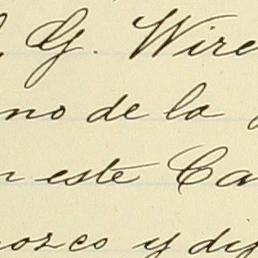 G. Wire
no de la
n este Ca
nozco y dij